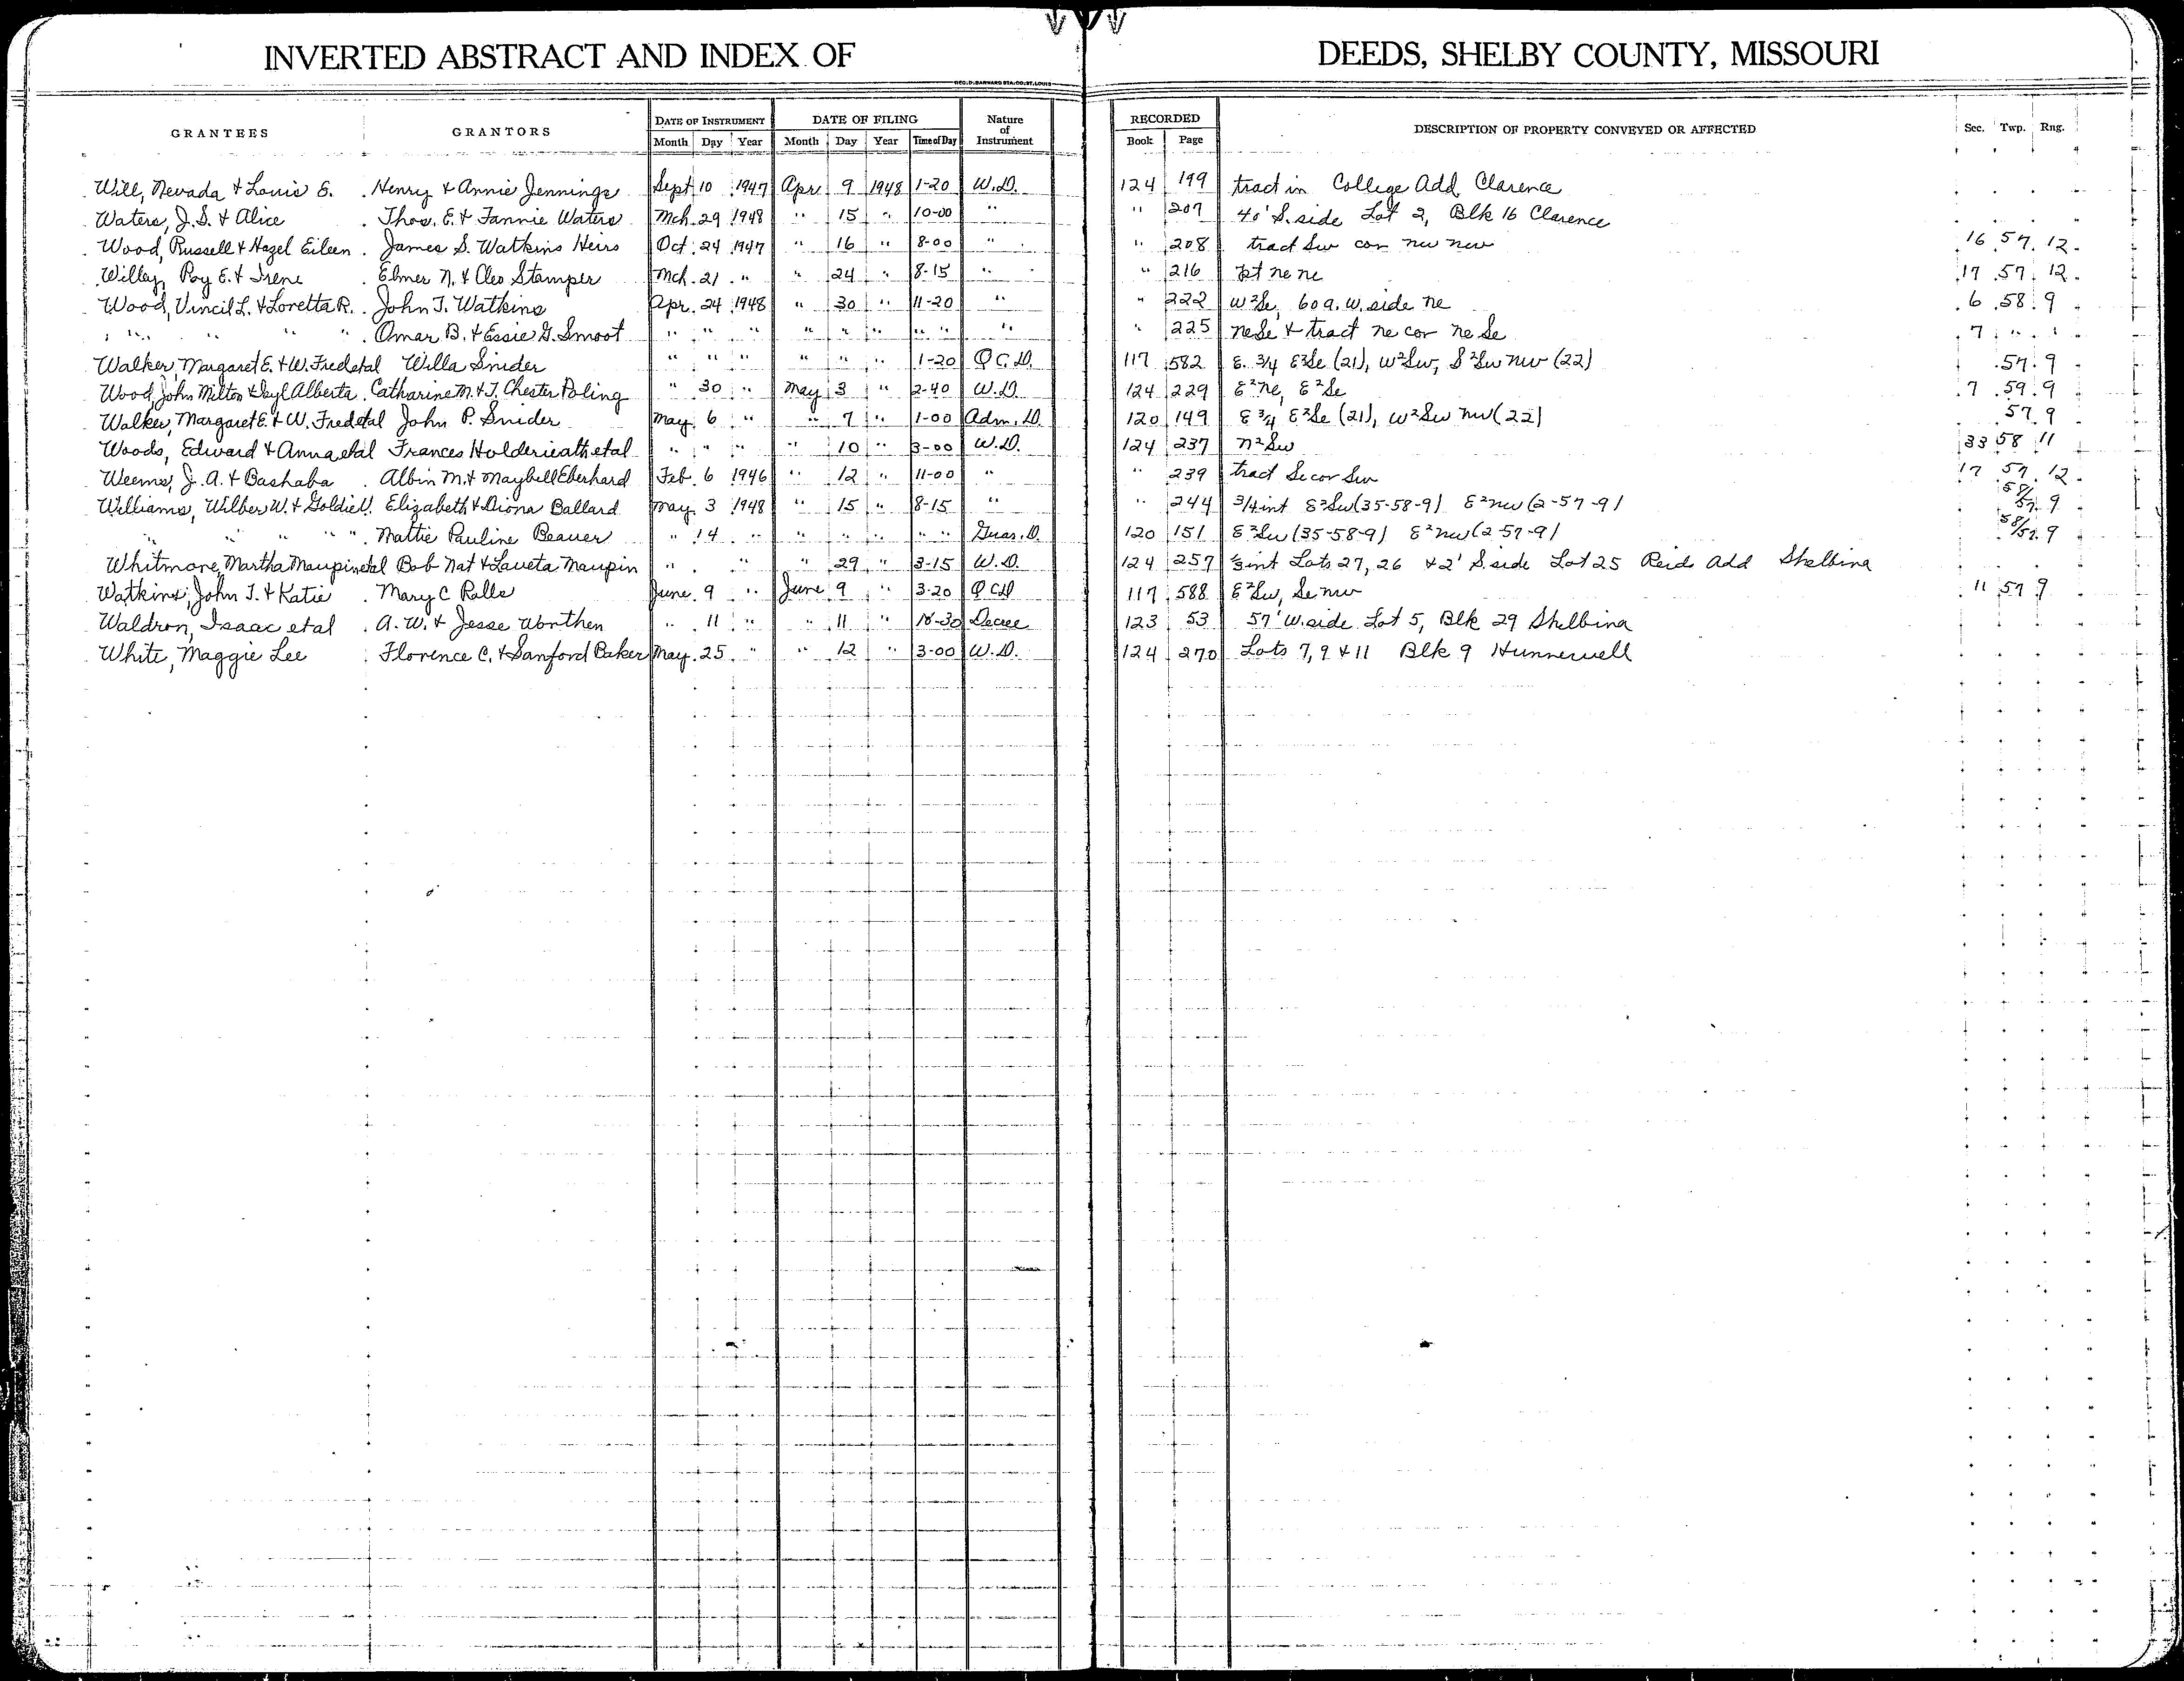 INVERTED ABSTRACT AND INDEX OF DEEDS, SHELBY COUNTY, MISSOURI
GEO. D. BARNARD STA. CO. ST. LOUIS
GRANTEES GRANTORS DATE OF INSTRUMENT DATE OF FILING Nature of Instrument RECORDED DESCRIPTION OF PROPERTY CONVEYED OR AFFECTED Sec. Twp. Rng.
Month Day Year Month Day Year Time of Day Book Page
Will, Nevada & Louis E. Henry & Annie Jennings Sept 10 1947 Apr 9 1948 1-20 W.D. 124 199 tract in College Add Clarence
Waters, J.S. & Alice Thos. E. & Fannie Waters Mch 29 1948 " 15 " 10-00 " " 207 40' S. side Lot 2, Blk 16 Clarence
Wood, Russell & Hazel Eileen James S. Watkins Heirs Oct 24 1947 " 16 " 8-00 " " 208 tract Sw cor nw nw 16 57 12
Willey, Roy E. & Irene Elmer N. & Cleo Stamper Mch 21 " " 24 " 8-15 " " 216 pt ne ne 17 57 12
Wood, Vincil L. & Loretta R. John T. Watkins Apr. 24 1948 " 30 " 11-20 " " 222 W²Se, 60 a. W. side ne 6 58 9
" " " " Omar B. & Essie G. Smoot " " " " " " " " " " 225 neSe & tract ne cor ne Se 7 " "
Walker, Margaret E. & W. Fred etal Willa Snider " " " " " " 1-20 Q.C.D. 117 582 E. 3/4 E²Se (21), W²Sw, S²Sw nw (22) 57 9
Wood, John Milton & Gayl Alberta Catharine M. & J. Chester Poling " 30 " May 3 " 2-40 W.D. 124 229 E²ne, E²Se 7 59 9
Walker, Margaret E. & W. Fred etal John P. Snider May 6 " " 7 " 1-00 Adm. D. 120 149 E 3/4 E²Se (21), W²Sw nw (22) 57 9
Woods, Edward & Anna etal Frances Holderieath etal " " " " 10 " 3-00 W.D. 124 237 n²Sw 33 58 11
Weems, J. A. & Bashaba Albin M. & Maybell Eberhard Feb. 6 1946 " 12 " 11-00 " " 239 tract Se cor Sw 17 57 12
Williams, Wilber W. & Goldie V. Elizabeth & Diona Ballard May 3 1948 " 15 " 8-15 " " 244 3/4 int E²Sw (35-58-9) E²nw (2-57-9) 58/57 9
" " " " Mattie Pauline Beaver " 14 " " " " " " Guar. D. 120 151 E²Sw (35-58-9) E²nw (2-57-9) 58/57 9
Whitmore, Martha Maupin etal Bob Nat & Laveta Maupin " " " 29 " 3-15 W.D. 124 257 int Lots 27, 26 & 2' S side Lot 25 Reids Add Shelbina
Watkins, John T. & Katie Mary C Ralls June 9 " June 9 " 3-20 QCD 117 588 E²Sw, Se nw 11 57 9
Waldron, Isaac etal A. W. & Jesse Worthen " 11 " " 11 " Decree 123 53 57' W. side Lot 5, Blk 29 Shelbina
White, Maggie Lee Florence C. & Sanford Baker May 25 " " 12 " 3-00 W.D. 124 270 Lots 7, 9 & 11 Blk 9 Hunnewell